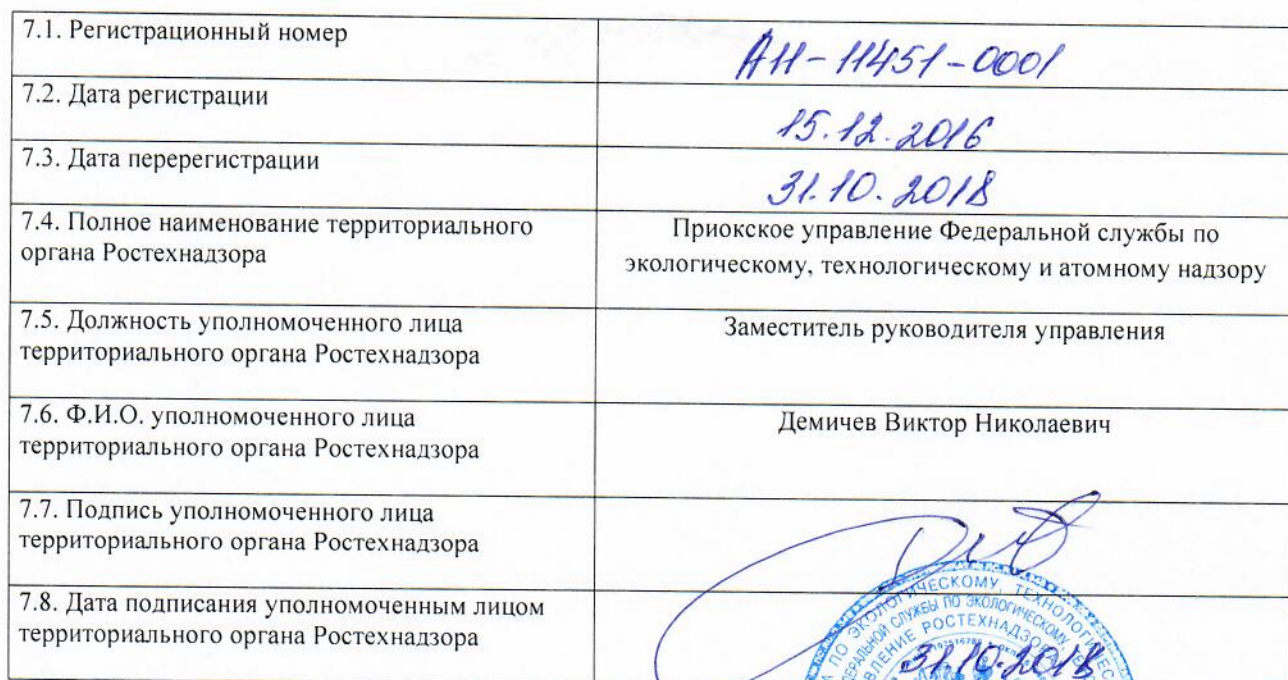 7.1. Регистрационный номер
А11-11451-0001
7.2. Дата регистрации
15.12.2016
7.3. Дата перерегистрации
31.10.2018
7.4. Полное наименование территориального
органа Ростехнадзора
Приокское управление Федеральной службы по
экологическому, технологическому и атомному надзору
7.5. Должность уполномоченного лица
территориального органа Ростехнадзора
Заместитель руководителя управления
7.6. Ф.И.О. уполномоченного лица
территориального органа Ростехнадзора
Демичев Виктор Николаевич
7.7. Подпись уполномоченного лица
территориального органа Ростехнадзора
7.8. Дата подписания уполномоченным лицом
территориального органа Ростехнадзора
31.10.2018
ПО ЭКОЛОГИЧЕСКОМУ, ТЕХНОЛОГИЧЕС
СЛУЖБЫ ПО ЭКОЛОГИЧЕСКОМУ
РОСТЕХНАДЗОРА